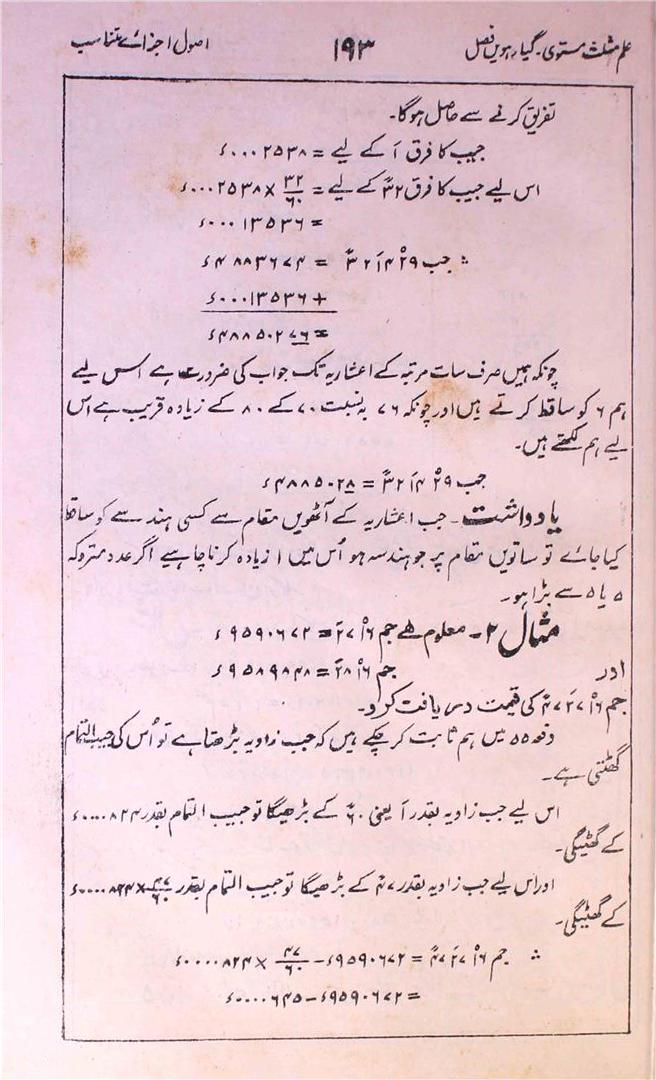 علم مثلث مستوی۔ گیارہویں فصل ۱۹۳ اصول اجزائے متناسب
تفریق کرنے سے حاصل ہوگا۔
جیب کا فرق ۱َ کے لیے = ۰۰۰۲۵۳۸ء
اس لیے جیب کا فرق ۳۲ً کے لیے = ۳۲/۶۰ × ۰۰۰۲۵۳۸ء
= ۰۰۰۱۳۵۳۶ء
∴ جب ۲۹° ۱۴َ ۳۲ً = ۴۸۸۳۶۷۴ء
+ ۰۰۰۱۳۵۳۶ء
= ۴۸۸۵۰۲۷۶ء
چونکہ ہمیں صرف سات مرتبہ کے اعشاریہ تک جواب کی ضرورت ہے اس لیے
ہم ۶ کو ساقط کرتے ہیں اور چونکہ ۷۶ بہ نسبت ۷۰ کے ۸۰ کے زیادہ قریب ہے اس
لیے ہم لکھتے ہیں۔
جب ۲۹° ۱۴َ ۳۲ً = ۴۸۸۵۰۲۸ء
یادداشت۔ جب اعشاریہ کے آٹھویں مقام سے کسی ہندسے کو ساقط
کیا جائے تو ساتویں مقام پر جو ہندسہ ہو اُس میں ۱ زیادہ کرنا چاہیے اگر عدد متروکہ
۵ یا ۵ سے بڑا ہو۔
مثال ۲۔ معلوم ہے جم ۱۶° ۲۷َ = ۹۵۹۰۶۷۲ء
اور جم ۱۶° ۲۸َ = ۹۵۸۹۸۴۸ء
جم ۱۶° ۲۷َ ۴۷ً کی قیمت دریافت کرو۔
دفعہ ۵۵ میں ہم ثابت کر چکے ہیں کہ جب زاویہ بڑھتا ہے تو اُس کی جیب التمام
گھٹتی ہے۔
اس لیے جب زاویہ بقدر ۱َ یعنی ۶۰ً کے بڑھیگا تو جیب التمام بقدر ۰۰۰۰۸۲۴ء
کے گھٹیگی۔
اور اس لیے جب زاویہ بقدر ۴۷ً کے بڑھیگا تو جیب التمام بقدر ۴۷/۶۰ × ۰۰۰۰۸۲۴ء
کے گھٹیگی۔
∴ جم ۱۶° ۲۷َ ۴۷ً = ۹۵۹۰۶۷۲ء − ۴۷/۶۰ × ۰۰۰۰۸۲۴ء
= ۹۵۹۰۶۷۲ء − ۰۰۰۰۶۴۵ء